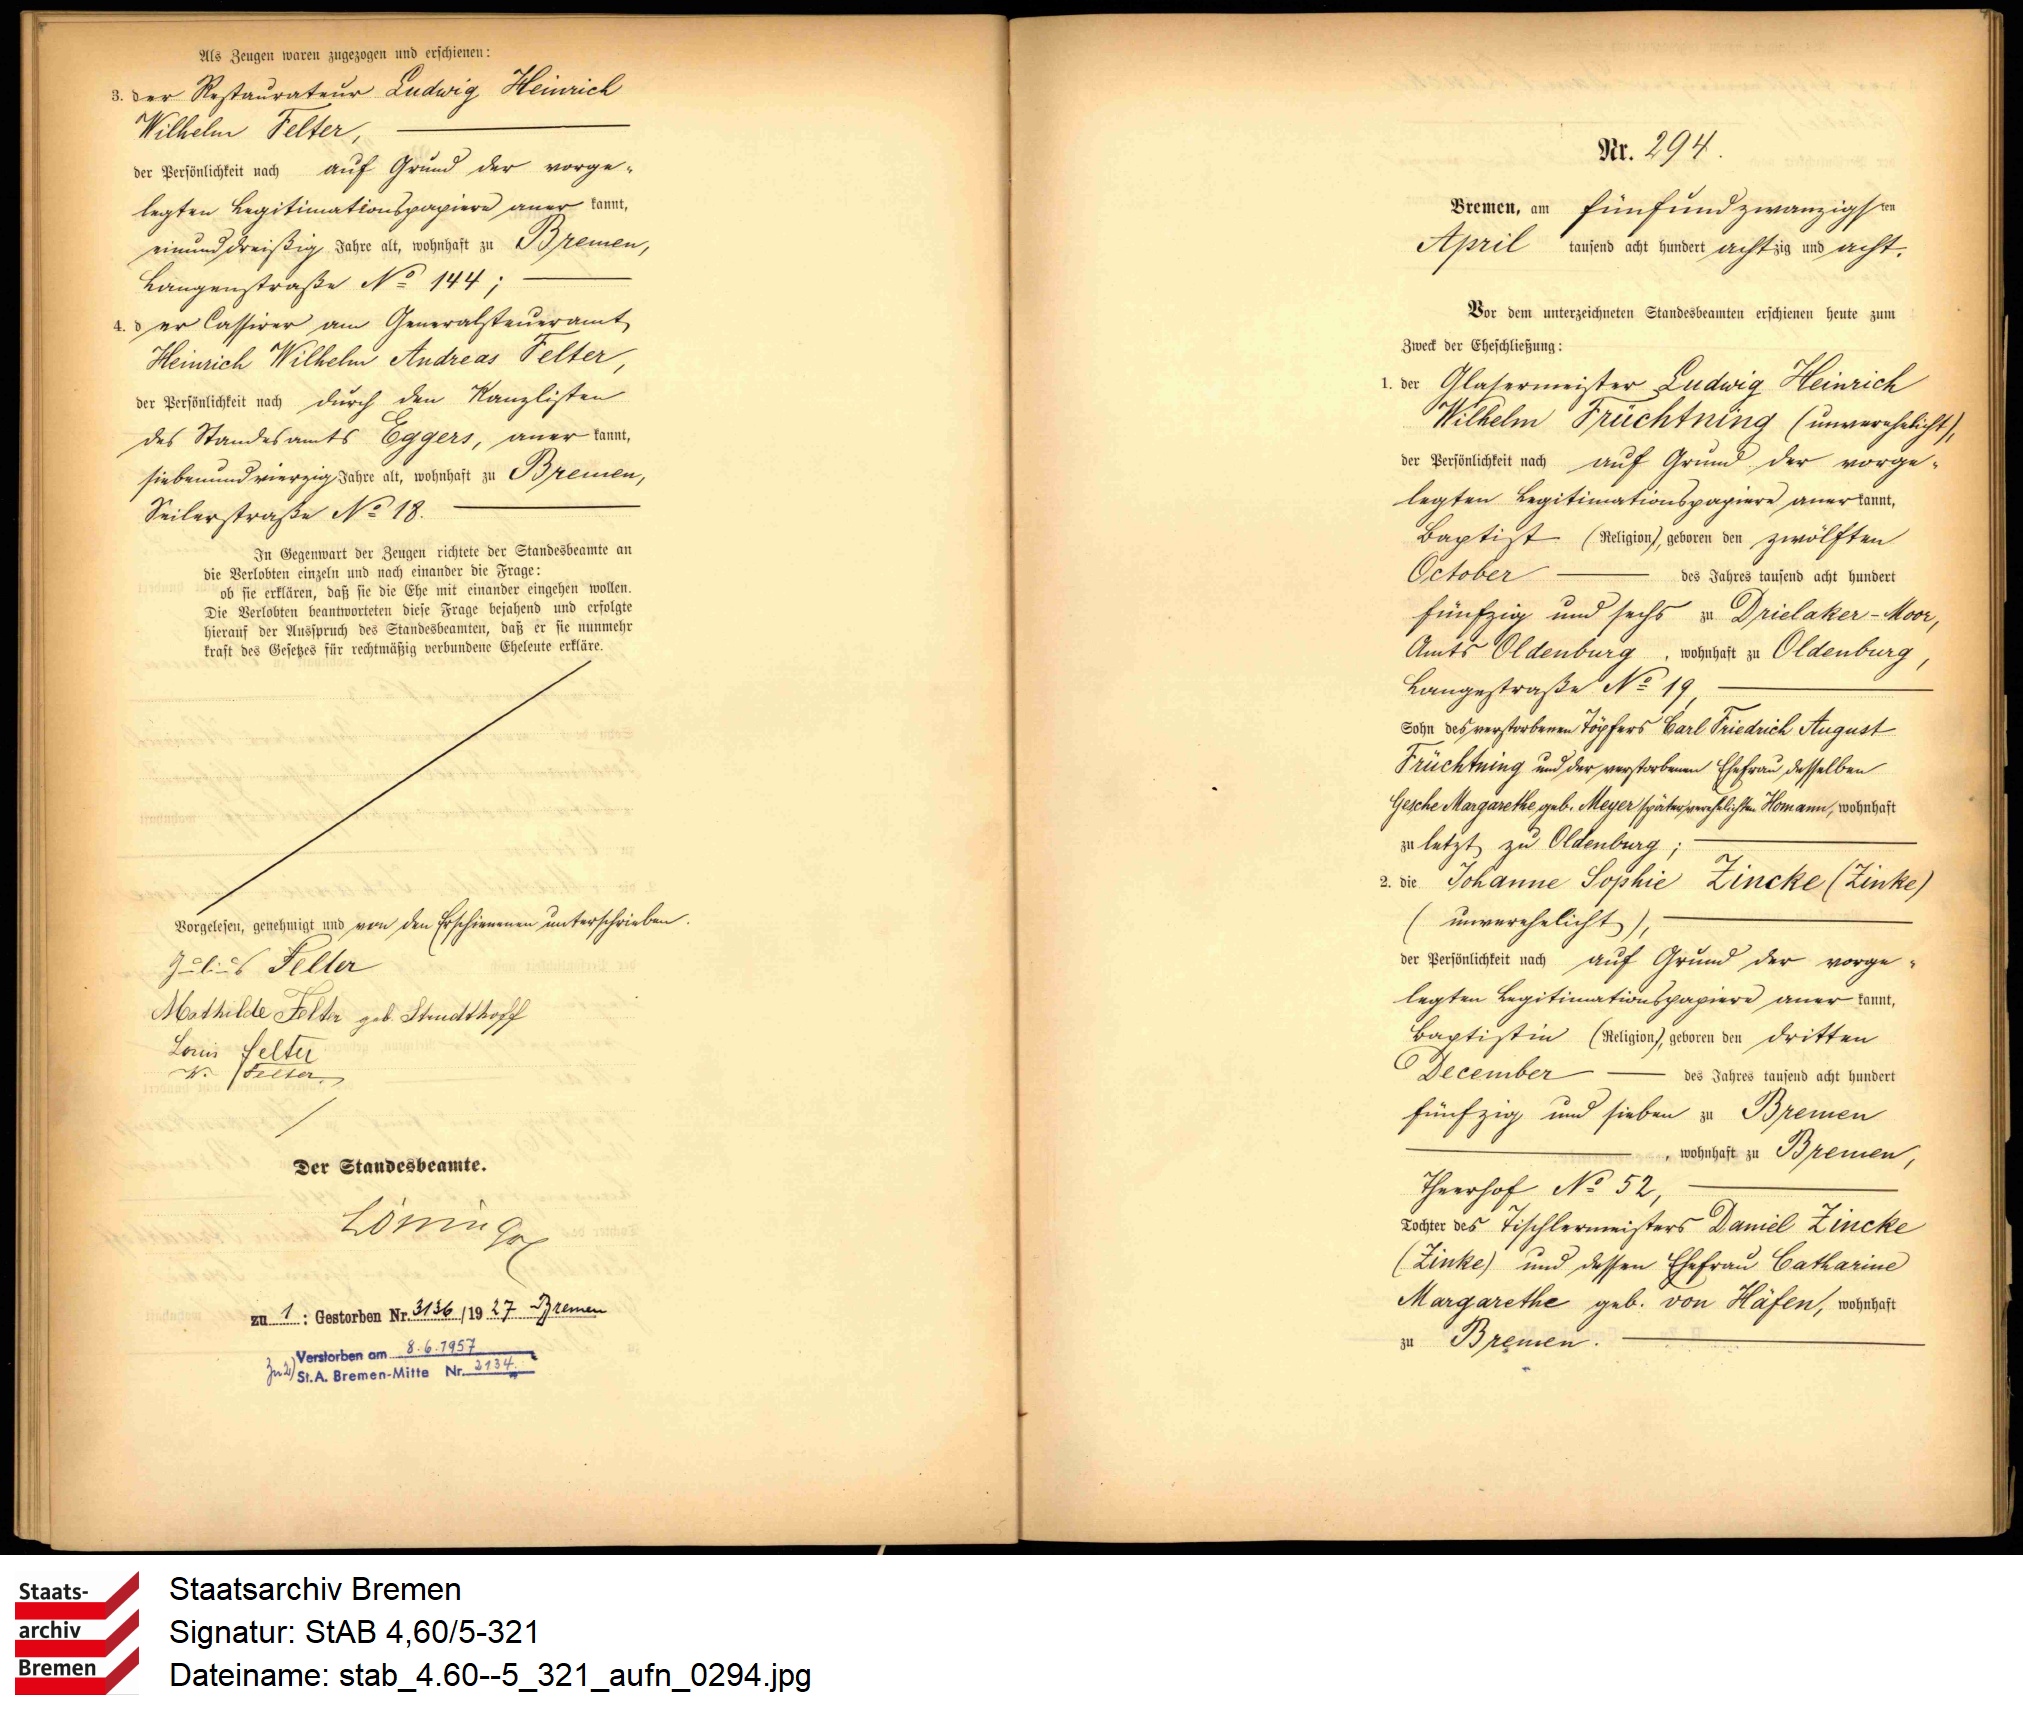 Als Zeugen waren zugezogen und erschienen:
3. der Restaurateur Ludwig Heinrich
Wilhelm Felter,
der Persönlichkeit nach auf Grund der vorge-
legten Legitimationspapiere aner kannt,
einunddreißig Jahre alt, wohnhaft zu Bremen,
Langenstraße No 144;
4. d er Cassirer am Generalsteueramt
Heinrich Wilhelm Andreas Felter,
der Persönlichkeit nach durch den Kanzlisten
des Standesamts Eggers, aner kannt,
siebenundvierzig Jahre alt, wohnhaft zu Bremen,
Seilerstraße No 18.
In Gegenwart der Zeugen richtete der Standesbeamte an
die Verlobten einzeln und nach einander die Frage:
ob sie erklären, daß sie die Ehe mit einander eingehen wollen.
Die Verlobten beantworteten diese Frage bejahend und erfolgte
hierauf der Ausspruch des Standesbeamten, daß er sie nunmehr
kraft des Gesetzes für rechtmäßig verbundene Eheleute erkläre.
Vorgelesen, genehmigt und von den Erschienenen unterschrieben.
Julius Felter
Mathilde Felter geb. Strudthoff
Louis Felter
W. Felter.
Der Standesbeamte.
zu 1: Gestorben Nr. 3136/1927 Bremen
Zu 2) Verstorben am 8.6.1957
St.A. Bremen-Mitte Nr. 2134.
Nr. 294.
Bremen, am fünfundzwanzigsten
April tausend acht hundert achtzig und acht.
Vor dem unterzeichneten Standesbeamten erschienen heute zum
Zweck der Eheschließung:
1. der Glasermeister Ludwig Heinrich
Wilhelm Früchtning (unverehelicht),
der Persönlichkeit nach auf Grund der vorge-
legten Legitimationspapiere aner kannt,
Baptist (Religion), geboren den zwölften
October des Jahres tausend acht hundert
fünfzig und sechs zu Drielaker-Moor,
Amts Oldenburg, wohnhaft zu Oldenburg,
Langestraße No 19,
Sohn des verstorbenen Töpfers Carl Friedrich August
Früchtning und der verstorbenen Ehefrau desselben
Gesche Margarethe geb. Meyer später verehelichten Homann, wohnhaft
zu letzt zu Oldenburg;
2. die Johanne Sophie Zincke (Zinke)
(unverehelicht),
der Persönlichkeit nach auf Grund der vorge-
legten Legitimationspapiere aner kannt,
Baptistin (Religion), geboren den dritten
December des Jahres tausend acht hundert
fünfzig und sieben zu Bremen
, wohnhaft zu Bremen,
Theerhof No 52,
Tochter des Tischlermeisters Daniel Zincke
(Zinke) und dessen Ehefrau Catharine
Margarethe geb. von Häfen, wohnhaft
zu Bremen.
Staats-
archiv
Bremen
Staatsarchiv Bremen
Signatur: StAB 4,60/5-321
Dateiname: stab_4.60--5_321_aufn_0294.jpg